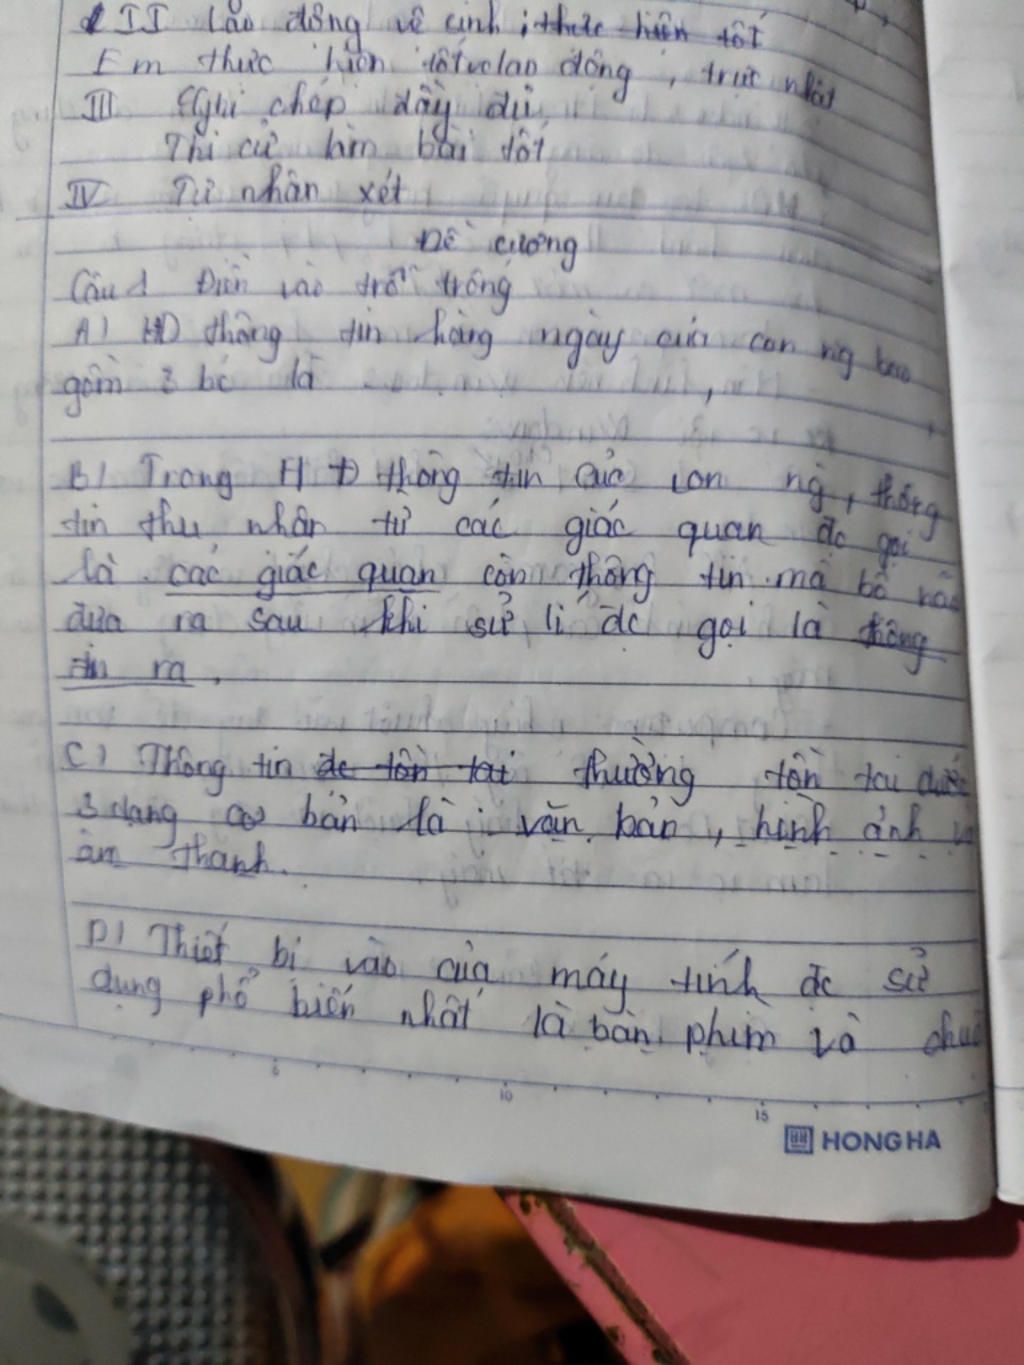 II Lao động vệ sinh ; thực hiện tốt
Em thực hiện tốt lao động, trực nhật
III Ghi chép đầy đủ,
Thi cử làm bài tốt
IV Tự nhận xét
Đề cương
Câu 1 Điền vào trỗ trống
A) HĐ thông tin hàng ngày của con ng bao
gồm 3 bc là ,
B) Trong HĐ thông tin của con ng, thông
tin thu nhận từ các giác quan đc gọi
là các giác quan còn thông tin mà bộ não
đưa ra sau khi sử lí đc gọi là thông
tin ra,
C) Thông tin đc tồn tại thường tồn tại dưới
3 dạng cơ bản là văn bản, hình ảnh và
âm thanh.
D) Thiết bị vào của máy tính đc sử
dụng phổ biến nhất là bàn phím và chuột
5 10 15
HONG HA